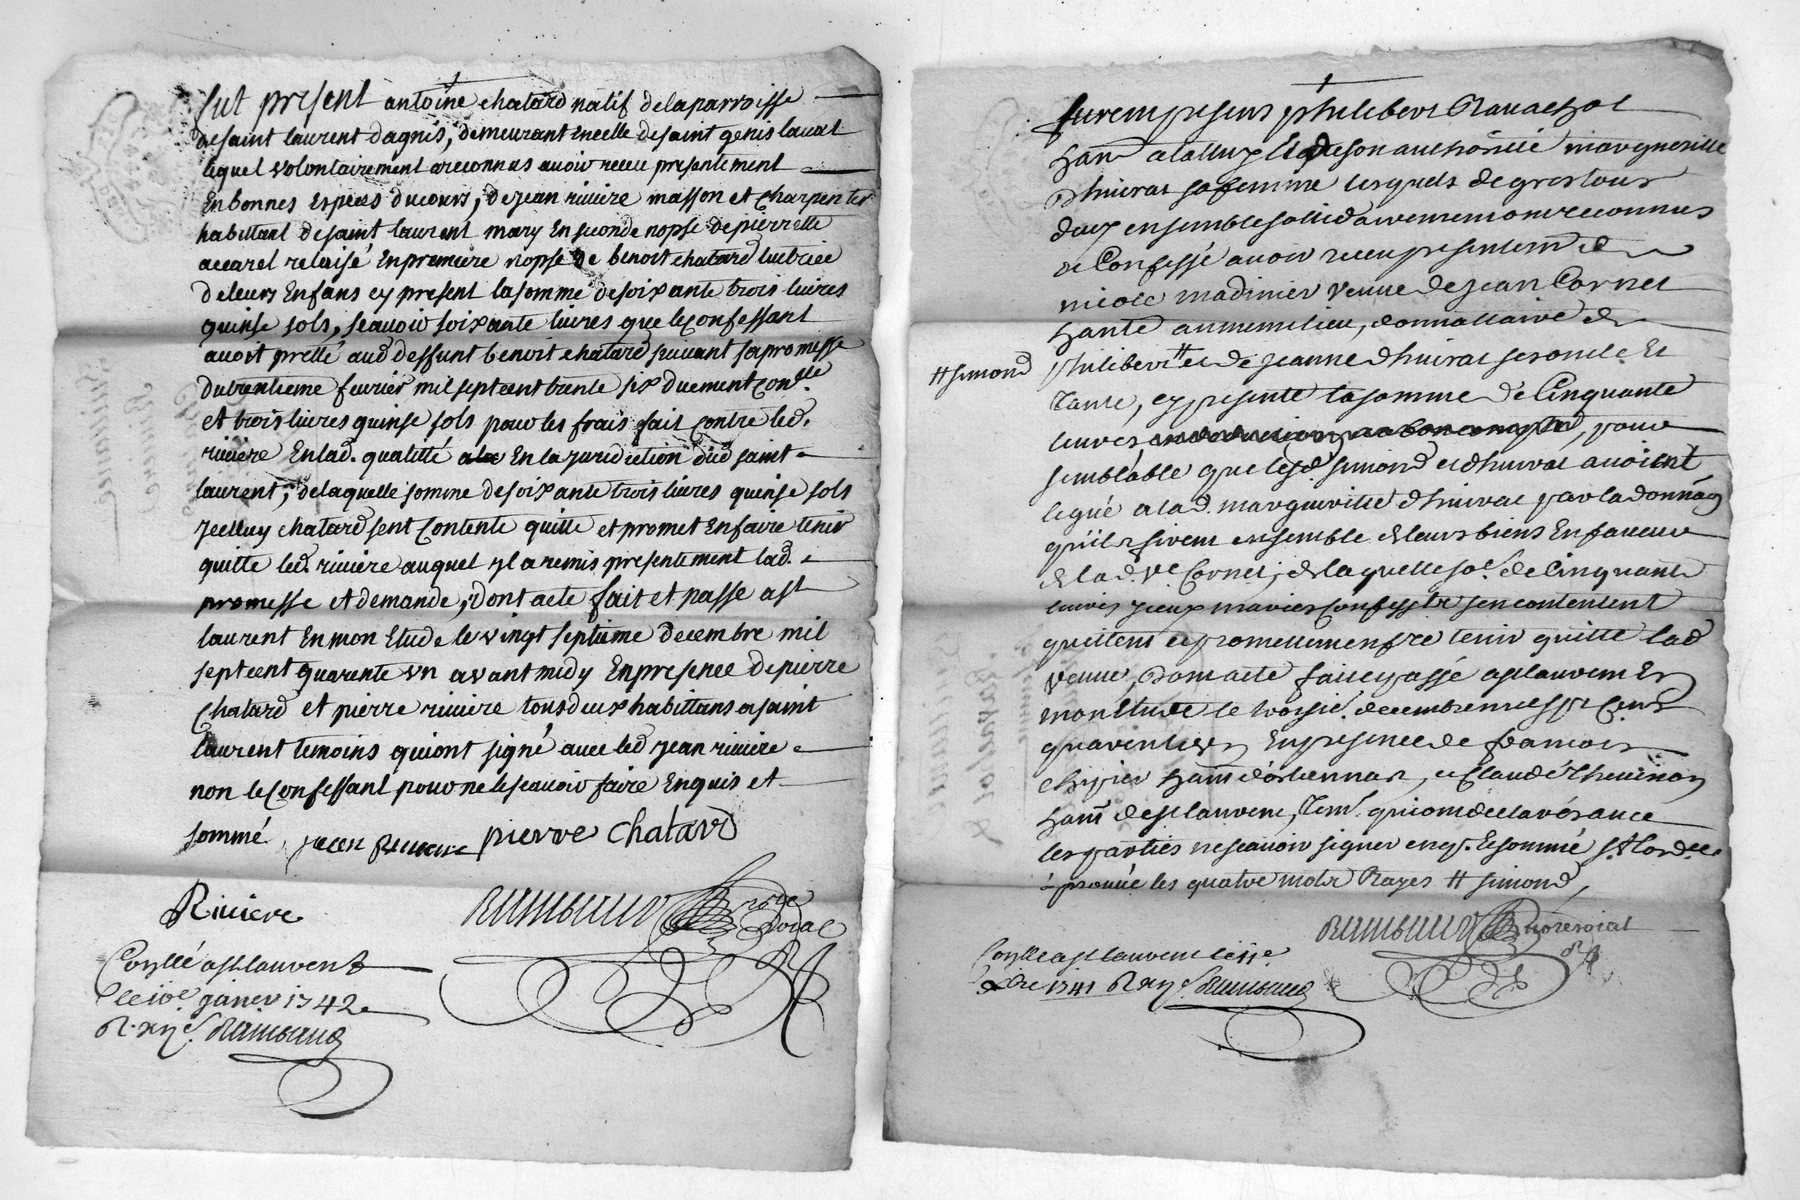 fut present antoine chatard natif de la parroisse
de saint laurent dagnis, demeurant en celle de saint genis laval
lequel volontairement a reconnus avoir receu presentement
En bonnes Espèces du cours, de jean riviere masson et charpentier
habittant de saint laurent mary En seconde nopse de pierrette
accarel relaisé En premiere nopse de benoit chatard tuctrice
de leurs Enfans cy present la somme de soixante trois livres
quinse sols, sçavoir soixante livres que le Confessant
avoit pretté aud deffunt benoit chatard suivant sa promesse
du trentieme fevrier mil sept cent trente six duement Con.lle
et trois livres quinse sols pour les frais fait contre led.
riviere En lad. qualitté En la juridiction dud saint
laurent, de laquelle somme de soixante trois livres quinse sols
jcelluy chatard sent Contente quitte et promet En faire tenir
quitte led. riviere auquel yl a remis presentement lad.
promesse et demande, dont acte fait et passé a st
laurent En mon Etude le vingt septieme decembre mil
sept cent quarente un avant midy En presence de pierre
Chatard et pierre riviere tous deux habittans a saint
laurent temoins qui ont signé avec led jean riviere
non le Confessant pour ne le sçavoir faire Enquis et
sommé jean riviere pierre chatard
Riviere
Raimbaud
Con.llé a st laurent
le 10e janvier 1742
R. xij s. Raimbaud
furem presens philibert Ravachol
habt. de son authôrité margueritte
dhuivat sa femme lesquels de gré et tous
deux ensemble solidairement ont reconnus
et Confessé avoir receu presentemt de
nicole madinier veuve de jean Cornet
hante aumemelieu, donnattaire de
philibert # et de jeanne dhuivat ses oncle Et
# simond
Tante, cy presente la somme de Cinquante
livres, pour
semblable que lesd. simond et dhuivat avoient
legué a lad. marguerittte dhuivat par la donnâon
quils firent ensemble de leurs biens En faveur
de lad. ve. Cornet, de laquelle soe. de Cinquante
livres jceux mariés Confesstz sen contentent
quittent et promettent en fre tenir quitte lad
veuve, dont acte fait et passé a st laurent En
mon Etude le troisie. decembre mil sept Cent
quarente un En presence de francois
habt. d'orliennas, et Claude thevenon
habt. de st laurent, tem. qui ont declaré avec
les parties ne scavoir signer enq. et sommé
aprouvé les quatre mots Rayes # simond,
Raimbaud nore royal
Con.lle a st laurent le 11e
xbre 1741 R xij s. Raimbaud